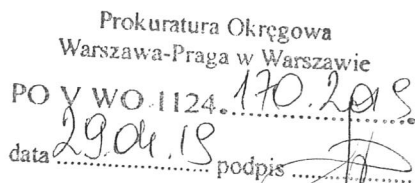 Prokuratura Okręgowa
Warszawa-Praga w Warszawie
PO V WO 1124.170.2019.
data 29.04.19 podpis